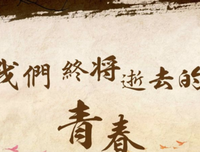 我們終將逝去的
青春